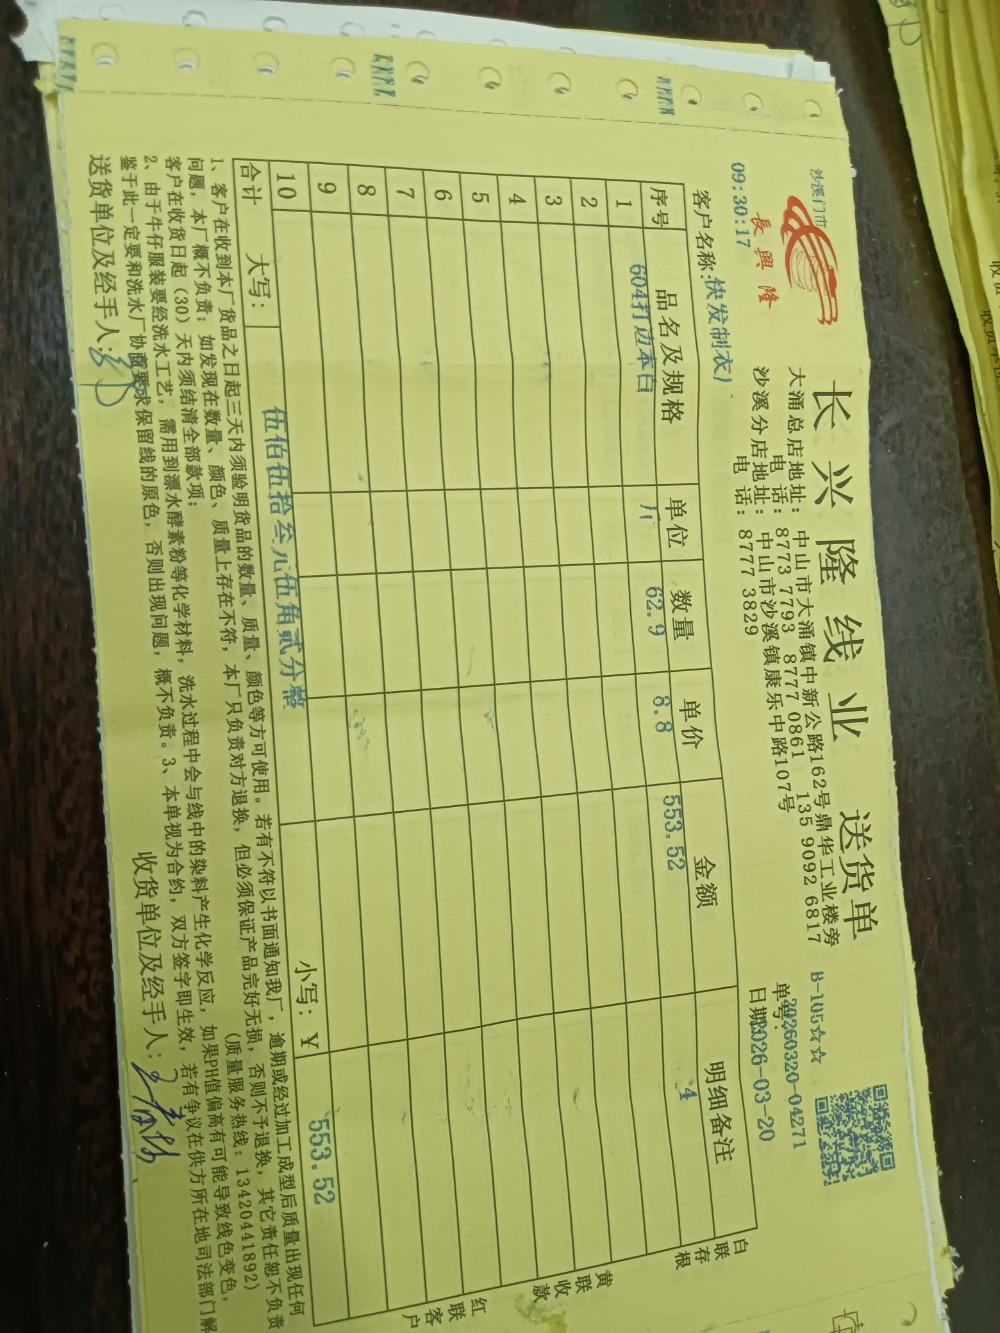 沙溪门市
長興隆
09:30:17
长兴隆线业 送货单
大涌总店地址: 中山市大涌镇中新公路162号鼎华工业楼旁
电 话: 8773 7793 8777 0861 135 9092 6817
沙溪分店地址: 中山市沙溪镇康乐中路107号
电 话: 8777 3829
B-105☆☆
单号:20260320-04271
日期:2026-03-20
客户名称:快发制衣
序号 品名及规格 单位 数量 单价 金额 明细备注
1 604打边本白 斤 62.9 8.8 553.52 4
2
3
4
5
6
7
8
9
10
合计 大写: 伍佰伍拾叁元伍角贰分整 小写: ¥ 553.52
白联存根
黄联收款
红联客户
1、客户在收到本厂货品之日起三天内须验明货品的数量、质量、颜色等方可使用。若有不符以书面通知我厂,逾期或经过加工成型后质量出现任何
问题,本厂概不负责;如发现在数量、颜色、质量上存在不符,本厂只负责对方退换,但必须保证产品完好无损,否则不予退换,其它责任恕不负责
客户在收货日起(30)天内须结清全部款项; (质量服务热线:13420441892)
2、由于牛仔服装要经洗水工艺,需用到漂水酵素粉等化学材料,洗水过程中会与线中的染料产生化学反应,如果PH值偏高有可能导致线色变色,
鉴于此一定要和洗水厂协商要求保留线的原色,否则出现问题,概不负责。3、本单视为合约,双方签字即生效,若有争议在供方所在地司法部门解
送货单位及经手人: 收货单位及经手人: